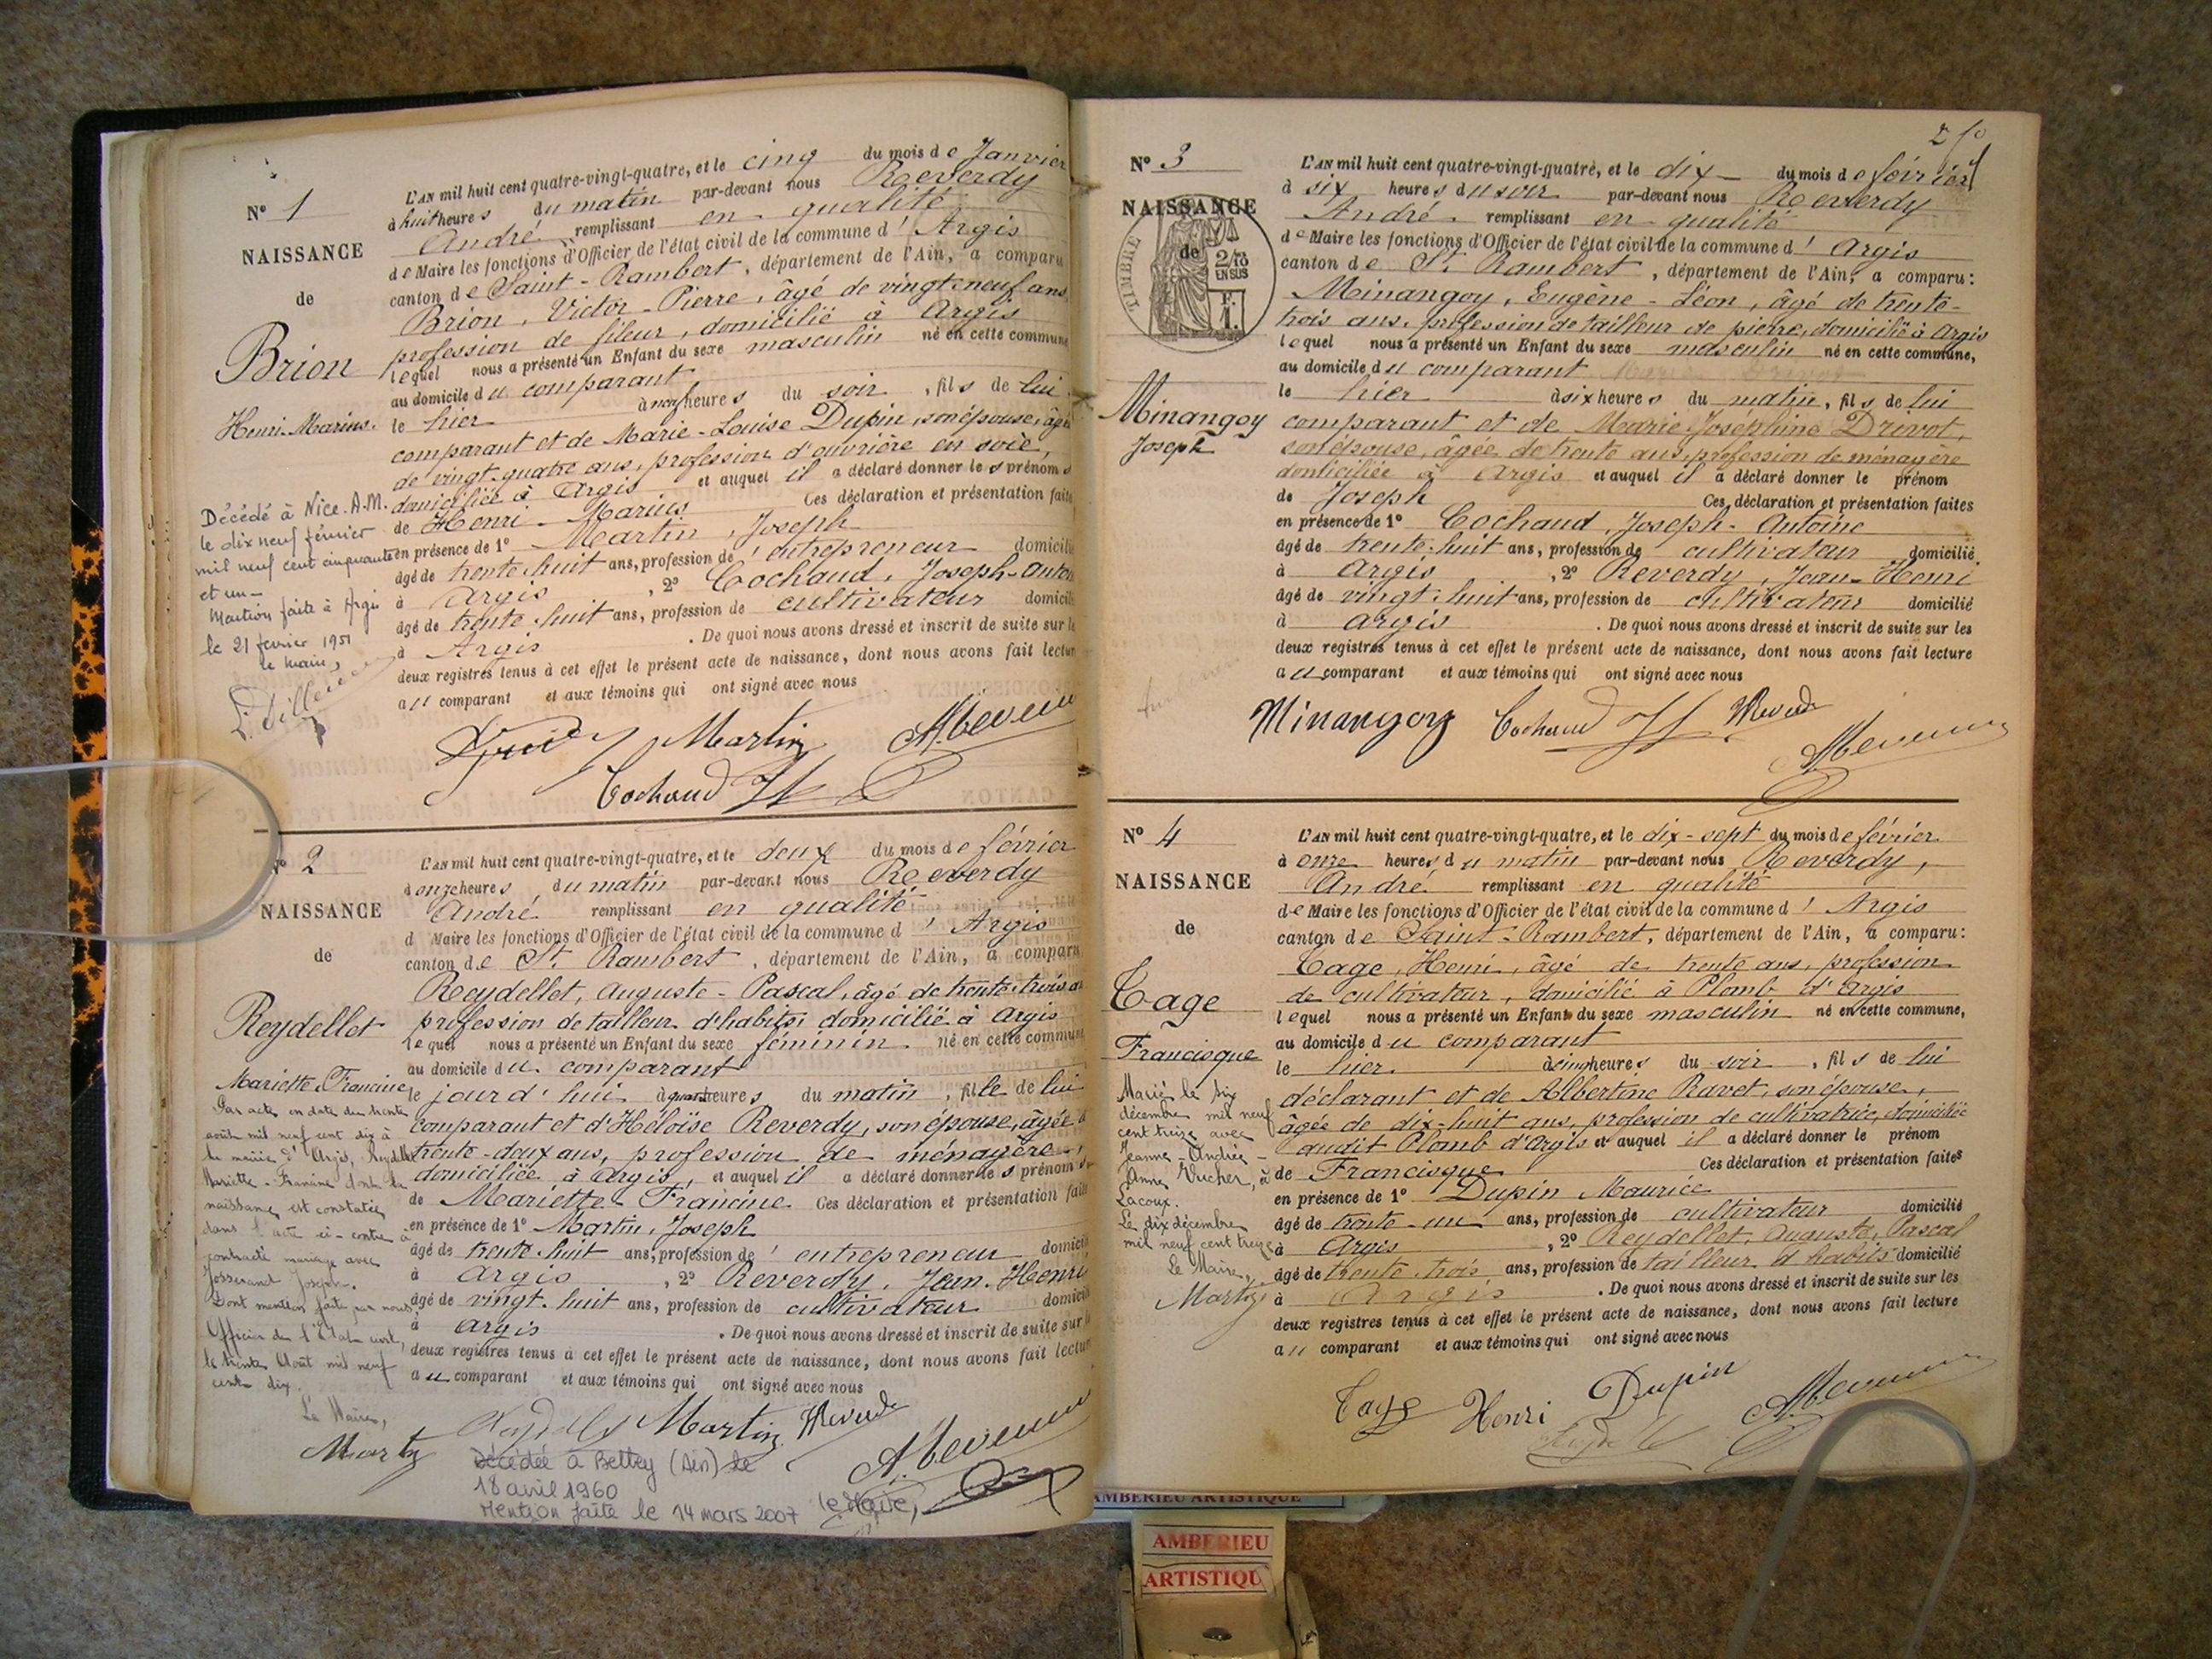 N° 1
NAISSANCE
de
Brion
Henri-Marius.
Décédé à Nice. A.M.
le dix neuf février
mil neuf cent cinquante
et un —
Mention faite à Argis
le 21 février 1951
le Maire,
L'AN mil huit cent quatre-vingt-quatre, et le cinq du mois de Janvier
à huit heures du matin par-devant nous Reverdy
André remplissant en qualité
de Maire les fonctions d'Officier de l'état civil de la commune d' Argis
canton de Saint-Rambert, département de l'Ain, a comparu
Brion, Victor-Pierre, âgé de vingt-neuf ans
profession de fileur, domicilié à Argis
lequel nous a présenté un Enfant du sexe masculin né en cette commune
au domicile du comparant
le hier à neuf heures du soir, fils de lui
comparant et de Marie-Louise Dupin, son épouse, âgée
de vingt-quatre ans, profession d'ouvrière en soie,
domiciliée à Argis et auquel il a déclaré donner les prénoms
de Henri-Marius Ces déclaration et présentation faites
en présence de 1° Martin, Joseph
âgé de trente-huit ans, profession d' entrepreneur domicilié
à Argis, 2° Cochaud, Joseph-Anton
âgé de trente-huit ans, profession de cultivateur domicilié
à Argis. De quoi nous avons dressé et inscrit de suite sur les
deux registres tenus à cet effet le présent acte de naissance, dont nous avons fait lecture
au comparant et aux témoins qui ont signé avec nous
Martin
Cochaud
N° 2
NAISSANCE
de
Reydellet
Mariette Francine
Par acte en date du trente
août mil neuf cent dix à
la mairie d'Argis, Reydellet
Mariette-Francine dont la
naissance est constatée
dans l'acte ci-contre a
contracté mariage avec
Josserand Joseph.
Dont mention faite par nous
Officier de l'Etat civil,
le trente Août mil neuf
cent dix.
Le Maire,
L'AN mil huit cent quatre-vingt-quatre, et le deux du mois de février
à onze heures du matin par-devant nous Reverdy
André remplissant en qualité
d Maire les fonctions d'Officier de l'état civil de la commune d' Argis
canton de St. Rambert, département de l'Ain, a comparu
Reydellet, Auguste-Pascal, âgé de trente-trois a
profession de tailleur d'habits domicilié à Argis
lequel nous a présenté un Enfant du sexe féminin. né en cette commune
au domicile du comparant
le jour d'hui à quatre heures du matin, fille de lui
comparant et d'Héloïse Reverdy, son épouse, âgée d
trente-deux ans, profession de ménagère
domiciliée à Argis, et auquel il a déclaré donner les prénoms
de Mariette Francine Ces déclaration et présentation faites
en présence de 1° Martin, Joseph
âgé de trente-huit ans, profession d' entrepreneur domicilié
à Argis, 2° Reverdy, Jean-Henri
âgé de vingt-huit ans, profession de cultivateur domicilié
à Argis. De quoi nous avons dressé et inscrit de suite sur les
deux registres tenus à cet effet le présent acte de naissance, dont nous avons fait lecture
au comparant et aux témoins qui ont signé avec nous
Martin
Décédée à Belley (Ain) le
18 avril 1960
Mention faite le 14 mars 2007 le Maire,
N° 3
NAISSANCE
de
TIMBRE
2/10
EN SUS
F.
1.
Minangoy
Joseph
L'AN mil huit cent quatre-vingt-quatre, et le dix — du mois de février
à six heures du soir par-devant nous Reverdy
André remplissant en qualité
de Maire les fonctions d'Officier de l'état civil de la commune d' Argis
canton de St. Rambert, département de l'Ain, a comparu:
Minangoy, Eugène-Léon, âgé de trente-
trois ans, profession de tailleur de pierre, domicilié à Argis
lequel nous a présenté un Enfant du sexe masculin né en cette commune,
au domicile du comparant
le hier à six heures du matin, fils de lui
comparant et de Marie Joséphine Drivot,
son épouse, âgée de trente ans, profession de ménagère
domiciliée à Argis et auquel il a déclaré donner le prénom
de Joseph Ces déclaration et présentation faites
en présence de 1° Cochaud, Joseph-Antoine
âgé de trente-huit ans, profession de cultivateur domicilié
à Argis, 2° Reverdy, Jean-Henri
âgé de vingt-huit ans, profession de cultivateur domicilié
à Argis. De quoi nous avons dressé et inscrit de suite sur les
deux registres tenus à cet effet le présent acte de naissance, dont nous avons fait lecture
au comparant et aux témoins qui ont signé avec nous
Minangoy Cochaud
N° 4
NAISSANCE
de
Tage
Francisque
Marié le six
décembre mil neuf
cent treize avec
Jeanne-Andrée-
Anna Vucher, à
Lacoux.
Le dix décembre
mil neuf cent treize
Le Maire,
L'AN mil huit cent quatre-vingt-quatre, et le dix-sept du mois de février
à onze heures du matin par-devant nous Reverdy,
André remplissant en qualité
de Maire les fonctions d'Officier de l'état civil de la commune d' Argis
canton de Saint-Rambert, département de l'Ain, a comparu:
Tage, Henri, âgé de trente ans, profession
de cultivateur, domicilié à Plomb d'Argis
lequel nous a présenté un Enfant du sexe masculin né en cette commune,
au domicile du comparant
le hier. à cinq heures du soir, fils de lui
déclarant et de Albertine Ravet, son épouse,
âgée de dix-huit ans, profession de cultivatrice, domiciliée
audit Plomb d'Argis et auquel il a déclaré donner le prénom
de Francisque Ces déclaration et présentation faites
en présence de 1° Dupin Maurice
âgé de trente-un ans, profession de cultivateur domicilié
à Argis, 2° Reydellet, Auguste, Pascal
âgé de trente-trois ans, profession de tailleur d'habits domicilié
à Argis. De quoi nous avons dressé et inscrit de suite sur les
deux registres tenus à cet effet le présent acte de naissance, dont nous avons fait lecture
au comparant et aux témoins qui ont signé avec nous
Tage Henri Dupin
AMBERIEU ARTISTIQUE
AMBERIEU
ARTISTIQU